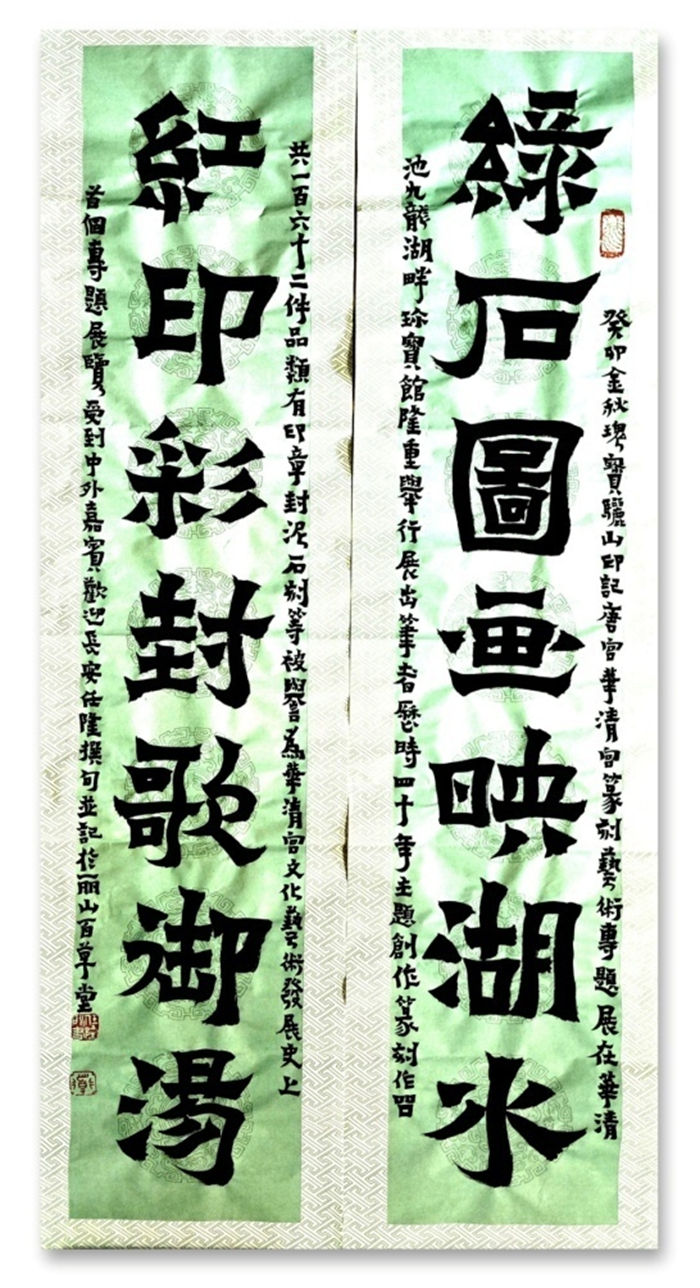 綠石圖画映湖水
癸卯金秋瑰寶驪山印記唐宮華清宮篆刻藝術專題展在華清
池九龍湖畔珍寶館隆重舉行展出筆者歷時四十年主題創作篆刻作品
紅印彩封歌御湯
共一百六十二件品類有印章封泥石刻等被譽為華清宮文化藝術發展史上
首個專題展覽受到中外嘉賓歡迎長安任隆撰句並記於丽山百草堂